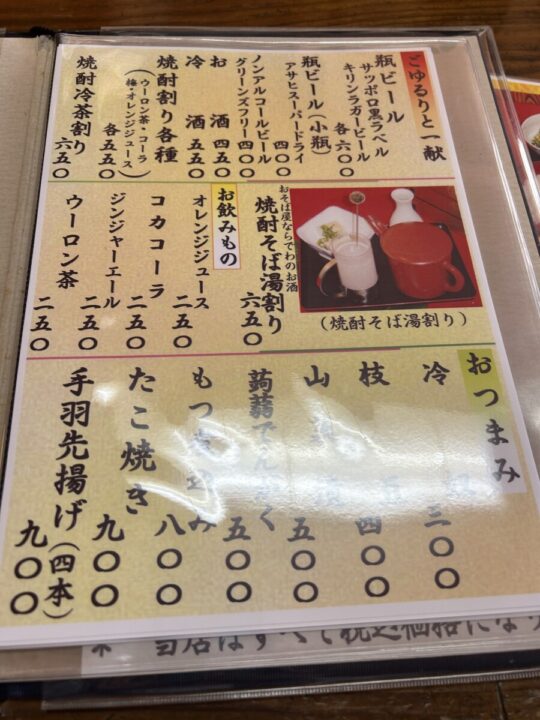 ごゆるりと一献
瓶ビール
サッポロ黒ラベル
キリンラガービール
各六〇〇
瓶ビール(小瓶)
アサヒスーパードライ
四〇〇
ノンアルコールビール
グリーンズフリー 四〇〇
お酒 四五〇
冷酒 五五〇
焼酎割り各種
(ウーロン茶・コーラ
梅・オレンジジュース)
各五五〇
焼酎冷茶割り
六五〇
(焼酎そば湯割り)
おそば屋ならでわのお酒
焼酎そば湯割り
六五〇
お飲みもの
オレンジジュース
二五〇
コカコーラ
二五〇
ジンジャーエール
二五〇
ウーロン茶
二五〇
おつまみ
冷奴
三〇〇
枝豆
四〇〇
山
五〇〇
蒟蒻でんがく
五〇〇
もつ煮込み
八〇〇
たこ焼き
九〇〇
手羽先揚げ(四本)
九〇〇
当店はすべて税込価格にな